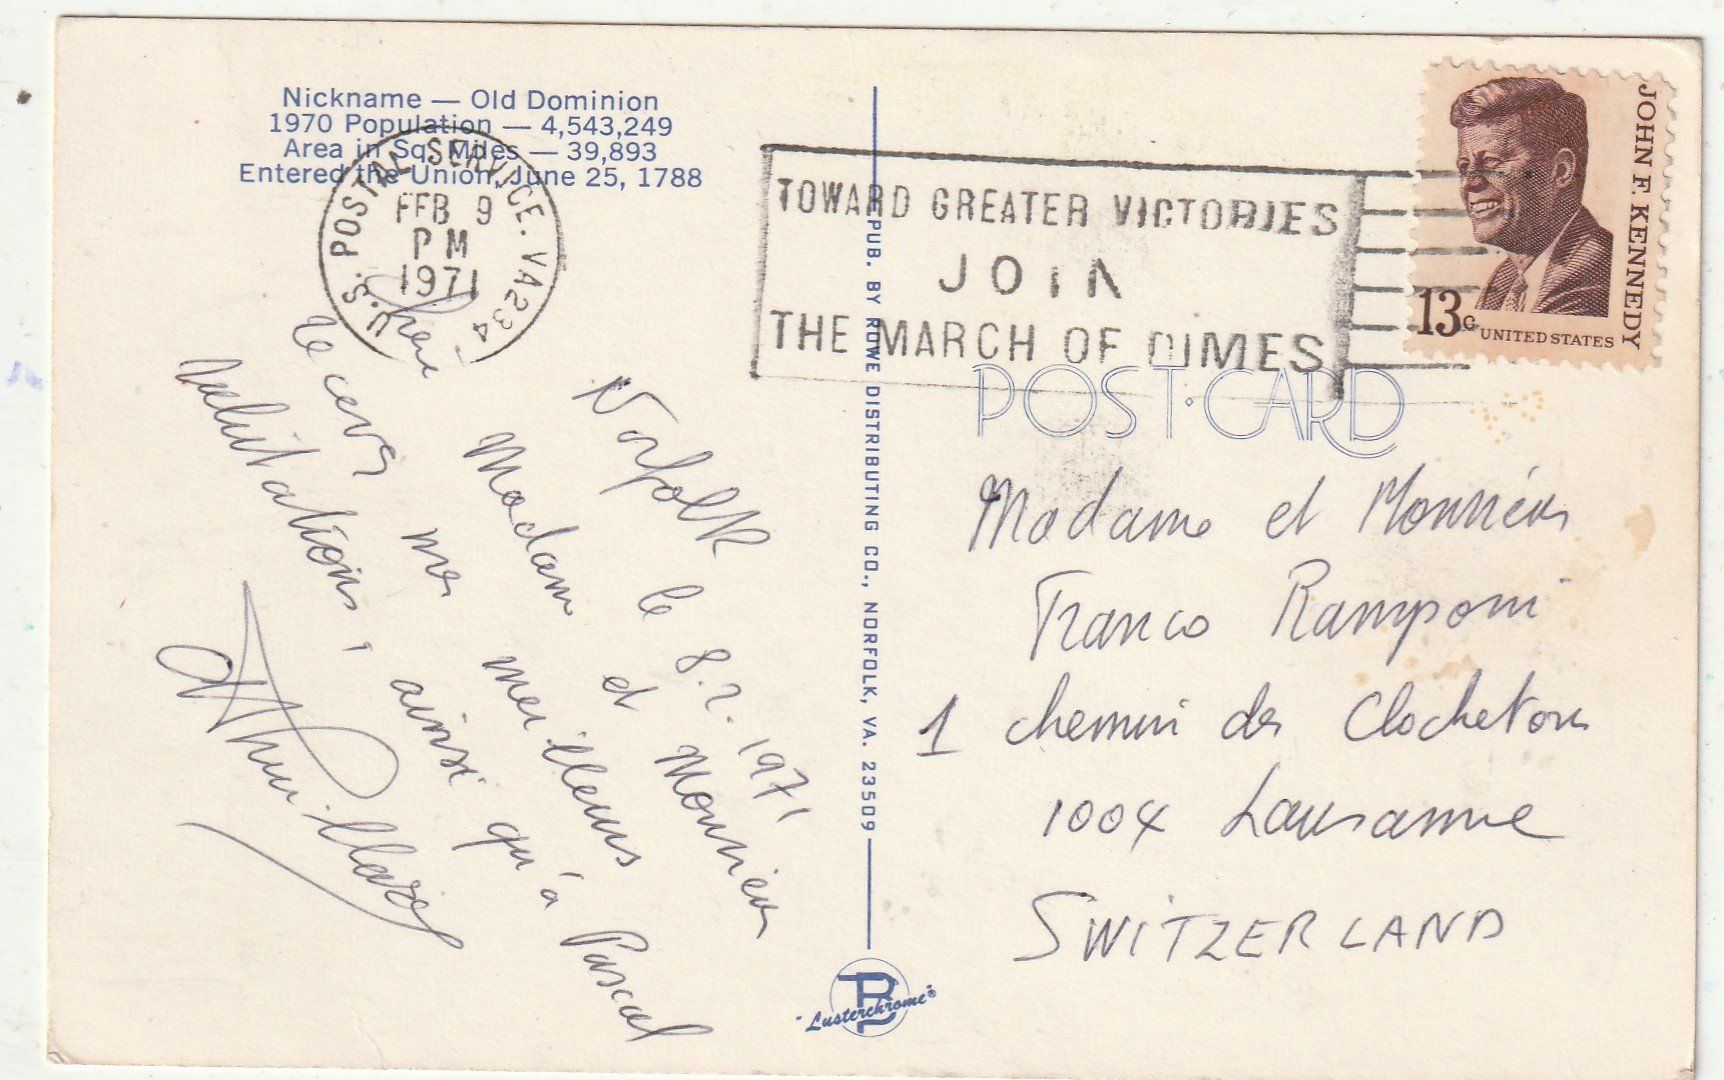 Nickname — Old Dominion
1970 Population — 4,543,249
Area in Sq. Miles — 39,893
Entered the Union, June 25, 1788
U.S. POSTAL SERVICE. VA234
FEB 9
PM
1971
TOWARD GREATER VICTORIES
JOIN
THE MARCH OF DIMES
JOHN F. KENNEDY
13c
UNITED STATES
POST CARD
PUB. BY ROWE DISTRIBUTING CO., NORFOLK, VA. 23509
Norfolk le 8.2.1971
Madame et Monsieur
mes meilleures
salutations, ainsi qu'à Pascal
Madame et Monsieur
Franco Ramponi
1 chemin des Clochetons
1004 Lausanne
SWITZERLAND
"Lusterchrome"®